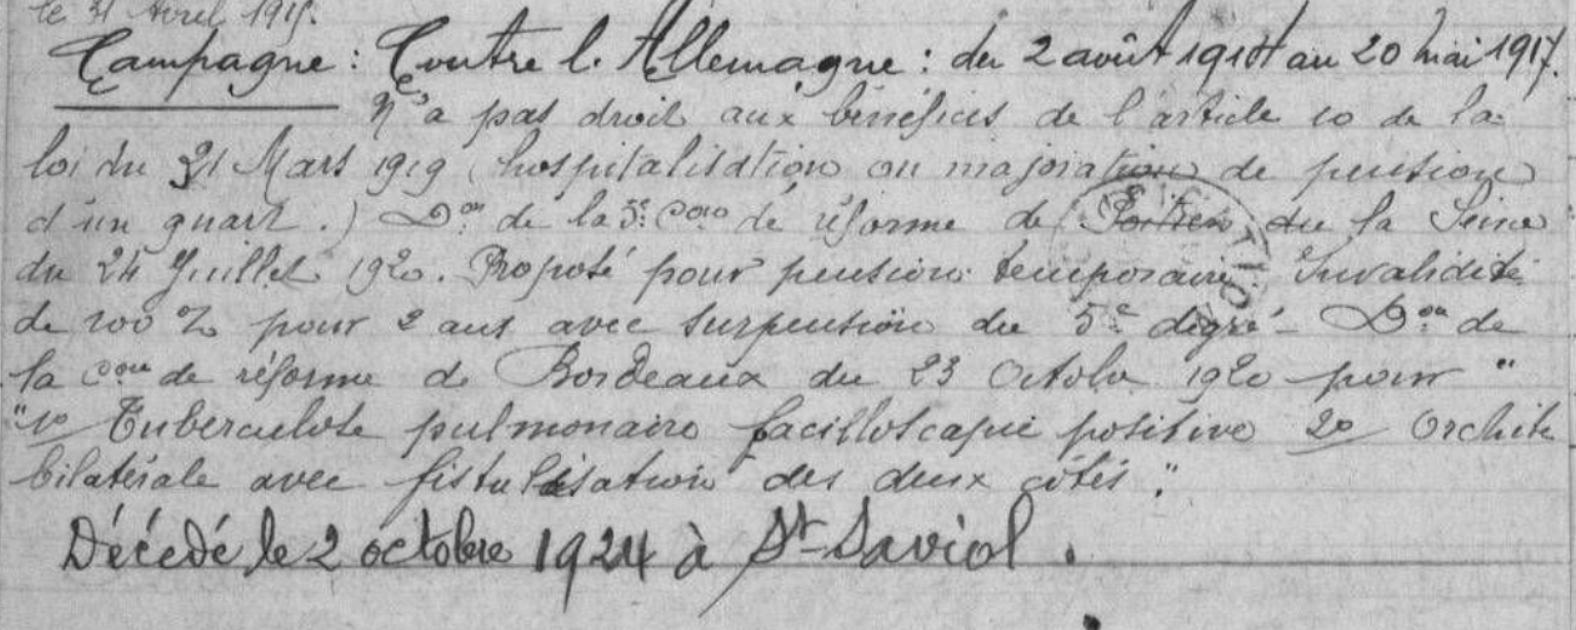 Campagne : Contre l'Allemagne : du 2 août 1914 au 20 mai 1917.
N'a pas droit aux bénéfices de l'article 10 de la
loi du 31 Mars 1919 (hospitalisation ou majoration de pension
d'un quart.) Don de la 5e Con de réforme de la Seine
du 24 Juillet 1920. Proposé pour pension temporaire Invalidité
de 100 % pour 2 ans avec surpension du 5e degré - Don de
la Con de réforme de Bordeaux du 23 Octobre 1920 pour "
"1o Tuberculose pulmonaire positive 2o Orchite
bilatérale avec fistulisation des deux côtés".
Décédé le 2 octobre 1924 à St-Saviol.